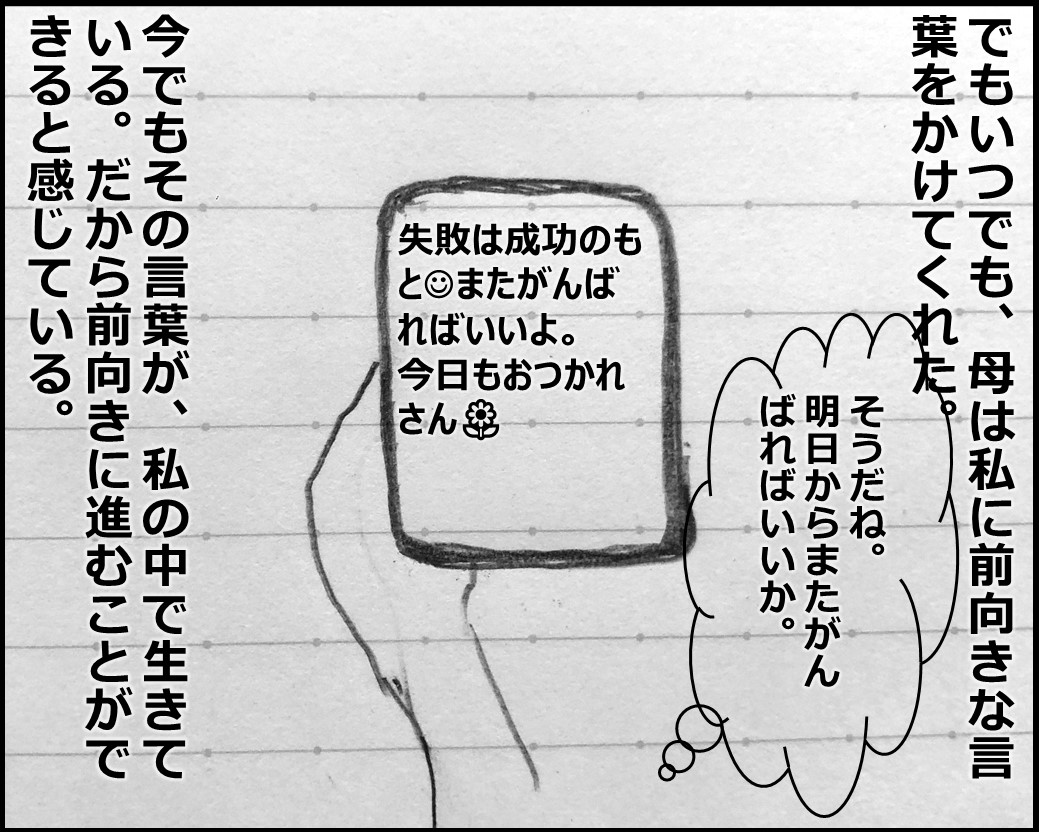 でもいつでも、母は私に前向きな言
葉をかけてくれた。
失敗は成功のも
と☺またがんば
ればいいよ。
今日もおつかれ
さん🌼
そうだね。
明日からまたがん
ばればいいか。
今でもその言葉が、私の中で生きて
いる。だから前向きに進むことがで
きると感じている。